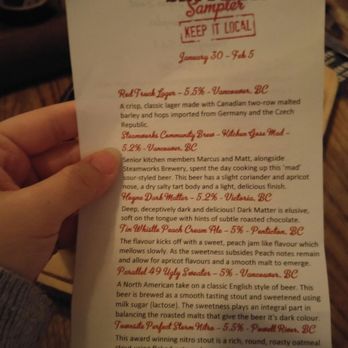 Sampler
KEEP IT LOCAL
January 30 - Feb 5
Red Truck Lager - 5.5% - Vancouver, BC
A crisp, classic lager made with Canadian two-row malted
barley and hops imported from Germany and the Czech
Republic.
Steamworks Community Brew - Kitchen Gose Mad -
5.2% - Vancouver, BC
Senior kitchen members Marcus and Matt, alongside
Steamworks Brewery, spent the day cooking up this 'mad'
sour-styled beer. This beer has a slight coriander and apricot
nose, a dry salty tart body and a light, delicious finish.
Hoyne Dark Matter - 5.2% - Victoria, BC
Deep, deceptively dark and delicious! Dark Matter is elusive,
soft on the tongue with hints of subtle roasted chocolate.
Tin Whistle Peach Cream Ale - 5% - Penticton, BC
The flavour kicks off with a sweet, peach jam like flavour which
mellows slowly. As the sweetness subsides Peach notes remain
and allow for apricot flavours and a smooth malt to emerge.
Parallel 49 Ugly Sweater - 5% - Vancouver, BC
A North American take on a classic English style of beer. This
beer is brewed as a smooth tasting stout and sweetened using
milk sugar (lactose). The sweetness plays an integral part in
balancing the roasted malts that give the beer it's dark colour.
Townsite Perfect Storm Nitro - 5.5% - Powell River, BC
This award winning nitro stout is a rich, round, roasty oatmeal